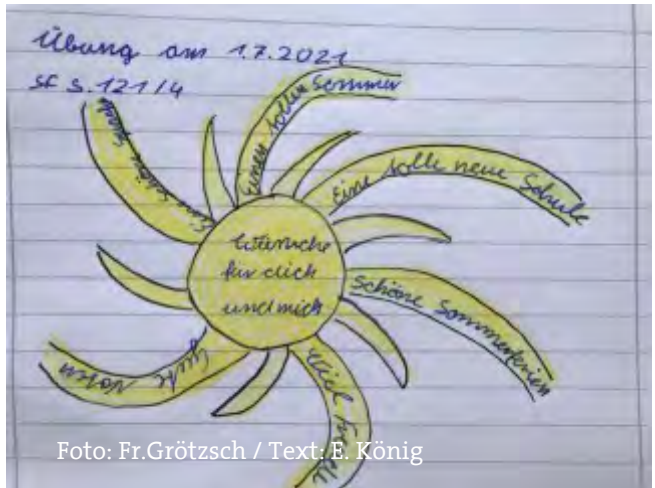 Übung am 1.7.2021
SF S. 121/4
Wünsche
für dich
und mich
Einen tollen Sommer
Eine tolle neue Schule
Schöne Sommerferien
Viel
Gute Noten
Eine schöne
Foto: Fr.Grötzsch / Text: E. König